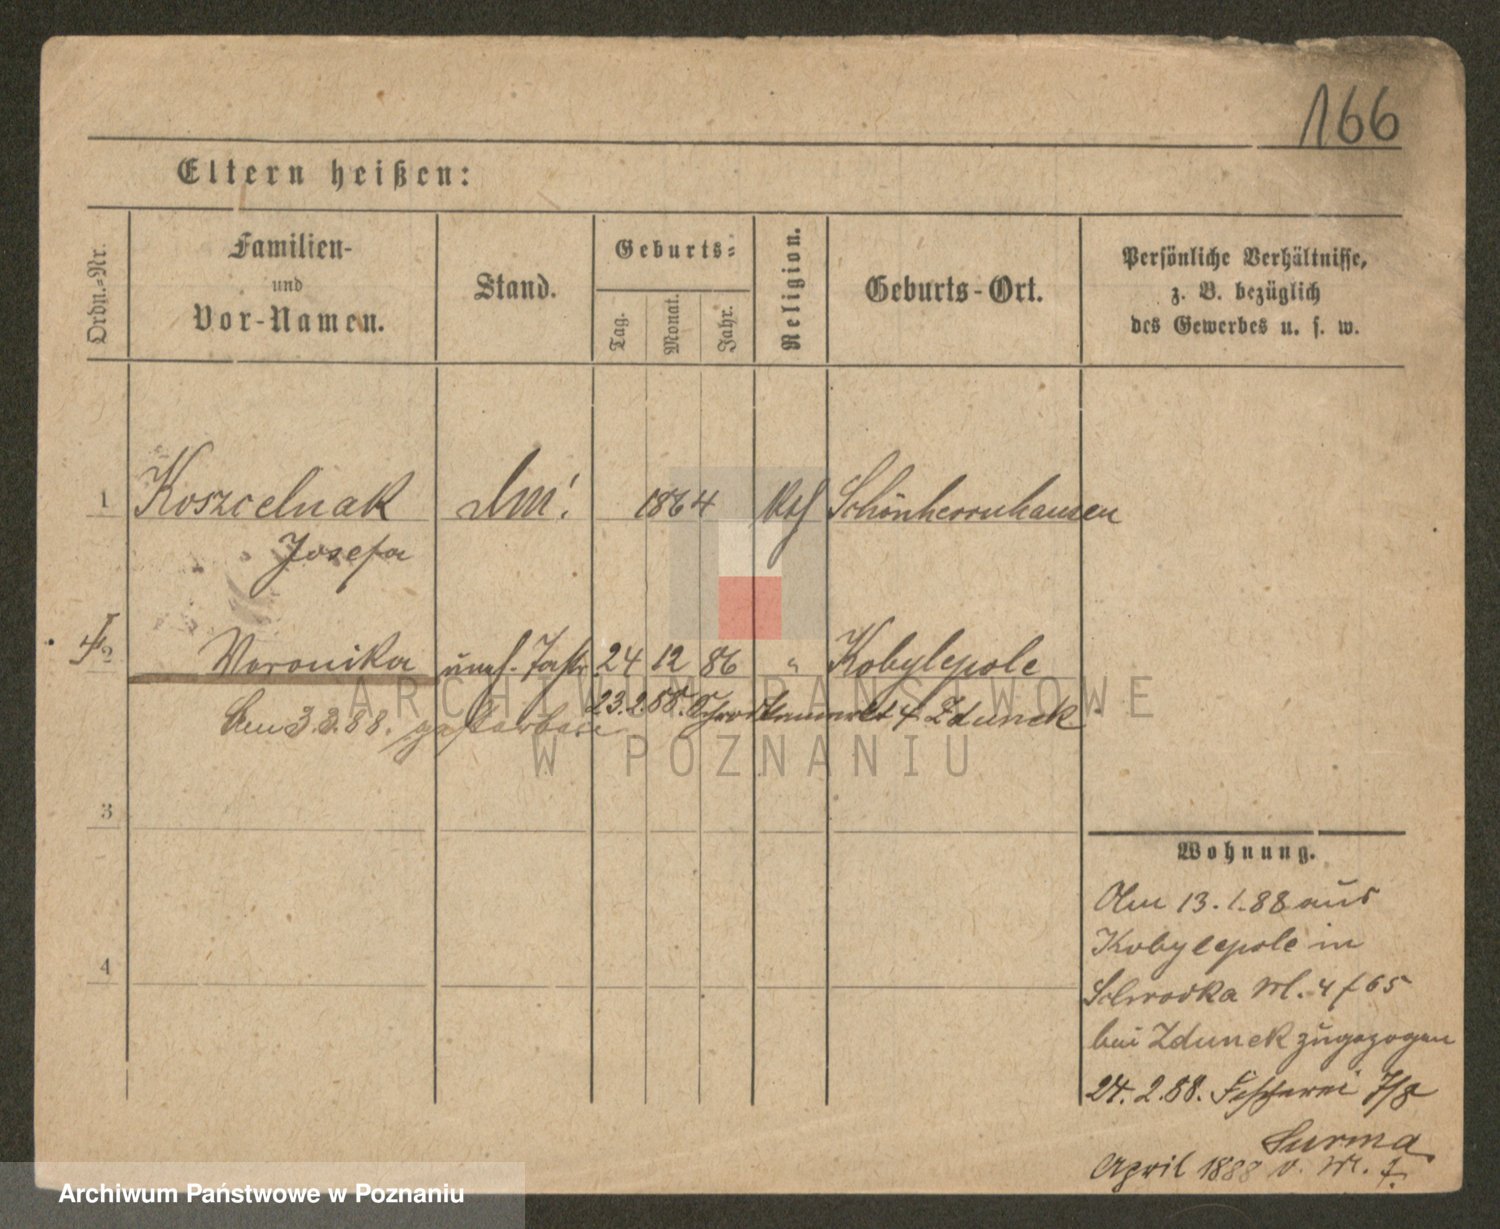 166
Eltern heißen:
Ordn.-Nr.
Familien-
und
Vor-Namen.
Stand.
Geburts-
Tag.
Monat.
Jahr.
Religion.
Geburts-Ort.
Persönliche Verhältnisse,
z. B. bezüglich
des Gewerbes u. s. w.
1 Koszcelnak 1864 Kth Schönherrnhausen
Josefa
2 Veronika unehl. 24 12 86 " Kobylepole
23.2.88. 4 Zdunek
Am 3.3.88. gestorben
3
4
Wohnung.
Am 13.1.88 aus
Kobylepole in
Schrodka M. 4 f 65
bei Zdunek zugezogen
24.2.88. Fischerei 7/8
Surma
April 1888 v. M. f.
ARCHIWUM PAŃSTWOWE
W POZNANIU
Archiwum Państwowe w Poznaniu